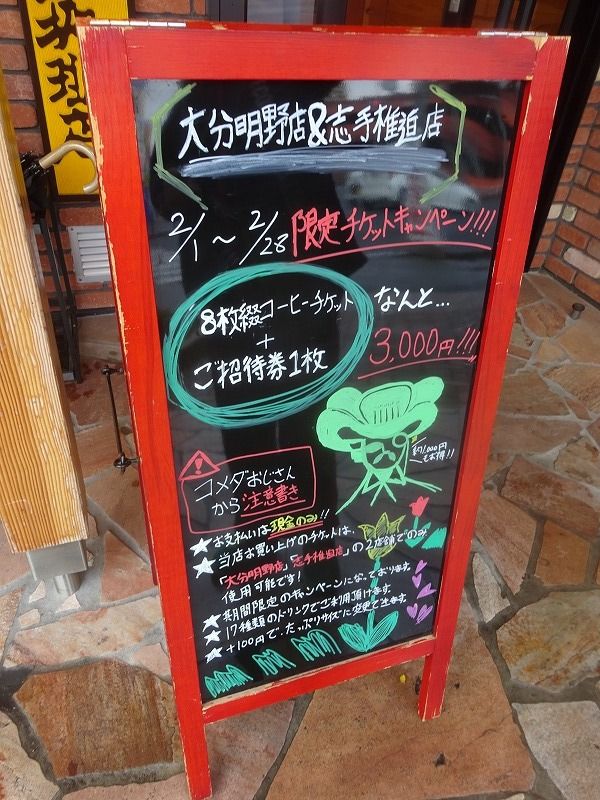 大分明野店&志手椎迫店
2/1～2/28 限定チケットキャンペーン!!!!
8枚綴コーヒーチケット
+
ご招待券1枚
なんと…
3,000円!!!
約1,000円
もお得!!
コメダおじさん
から注意書き
★お支払いは現金のみ!!
★当店お買い上げのチケットは、
「大分明野店」「志手椎迫店」の2店舗でのみ
使用可能です!
★期間限定のキャンペーンになっております。
★17種類のドリンクでご利用頂けます。
★+100円で、たっぷりサイズに変更できます。